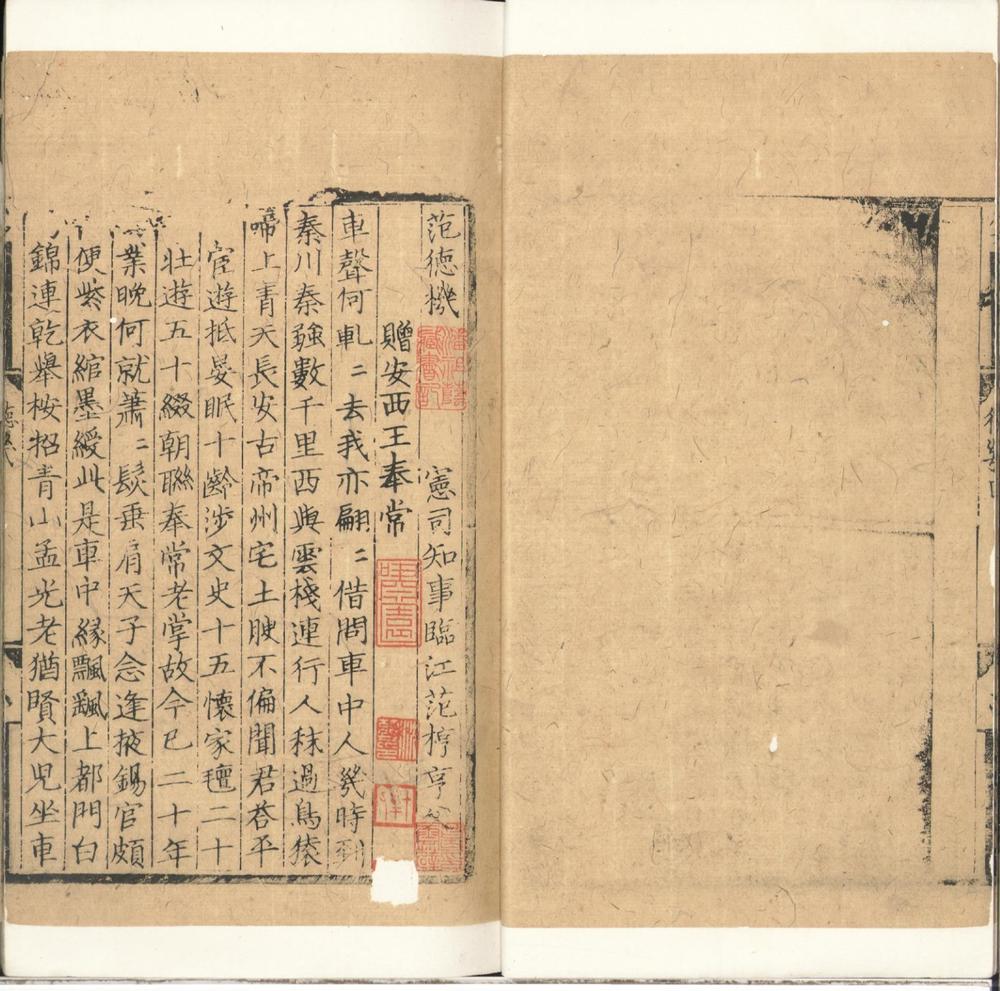 范德機
憲司知事臨江范梈亨父
贈安西王奉常
車聲何軋〻去我亦翩〻借問車中人幾時到
秦川秦強數千里西與雲棧連行人秣過鳥猿
啼上青天長安古帝州宅土腴不偏聞君荅平
宦遊抵晏眠十齡涉文史十五懷家氊二十
壯遊五十綴朝聯奉常老掌故今已二十年
業晚何就蕭〻髮垂肩天子念逢掖錫官頗
便紫衣綰墨綬此是車中緣飄飄上都門白
錦連乾舉桉招青山孟光老猶賢大兒坐車
潘祖蔭藏書記
德幾